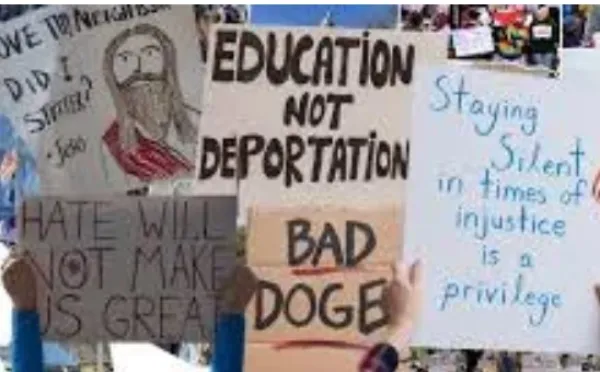 LOVE THY NEIGHBOR
DID I
STUTTER?
- Jesus
EDUCATION
NOT
DEPORTATION
Staying
Silent
in times of
injustice
is a
privilege
HATE WILL
NOT MAKE
US GREAT
BAD
DOGE